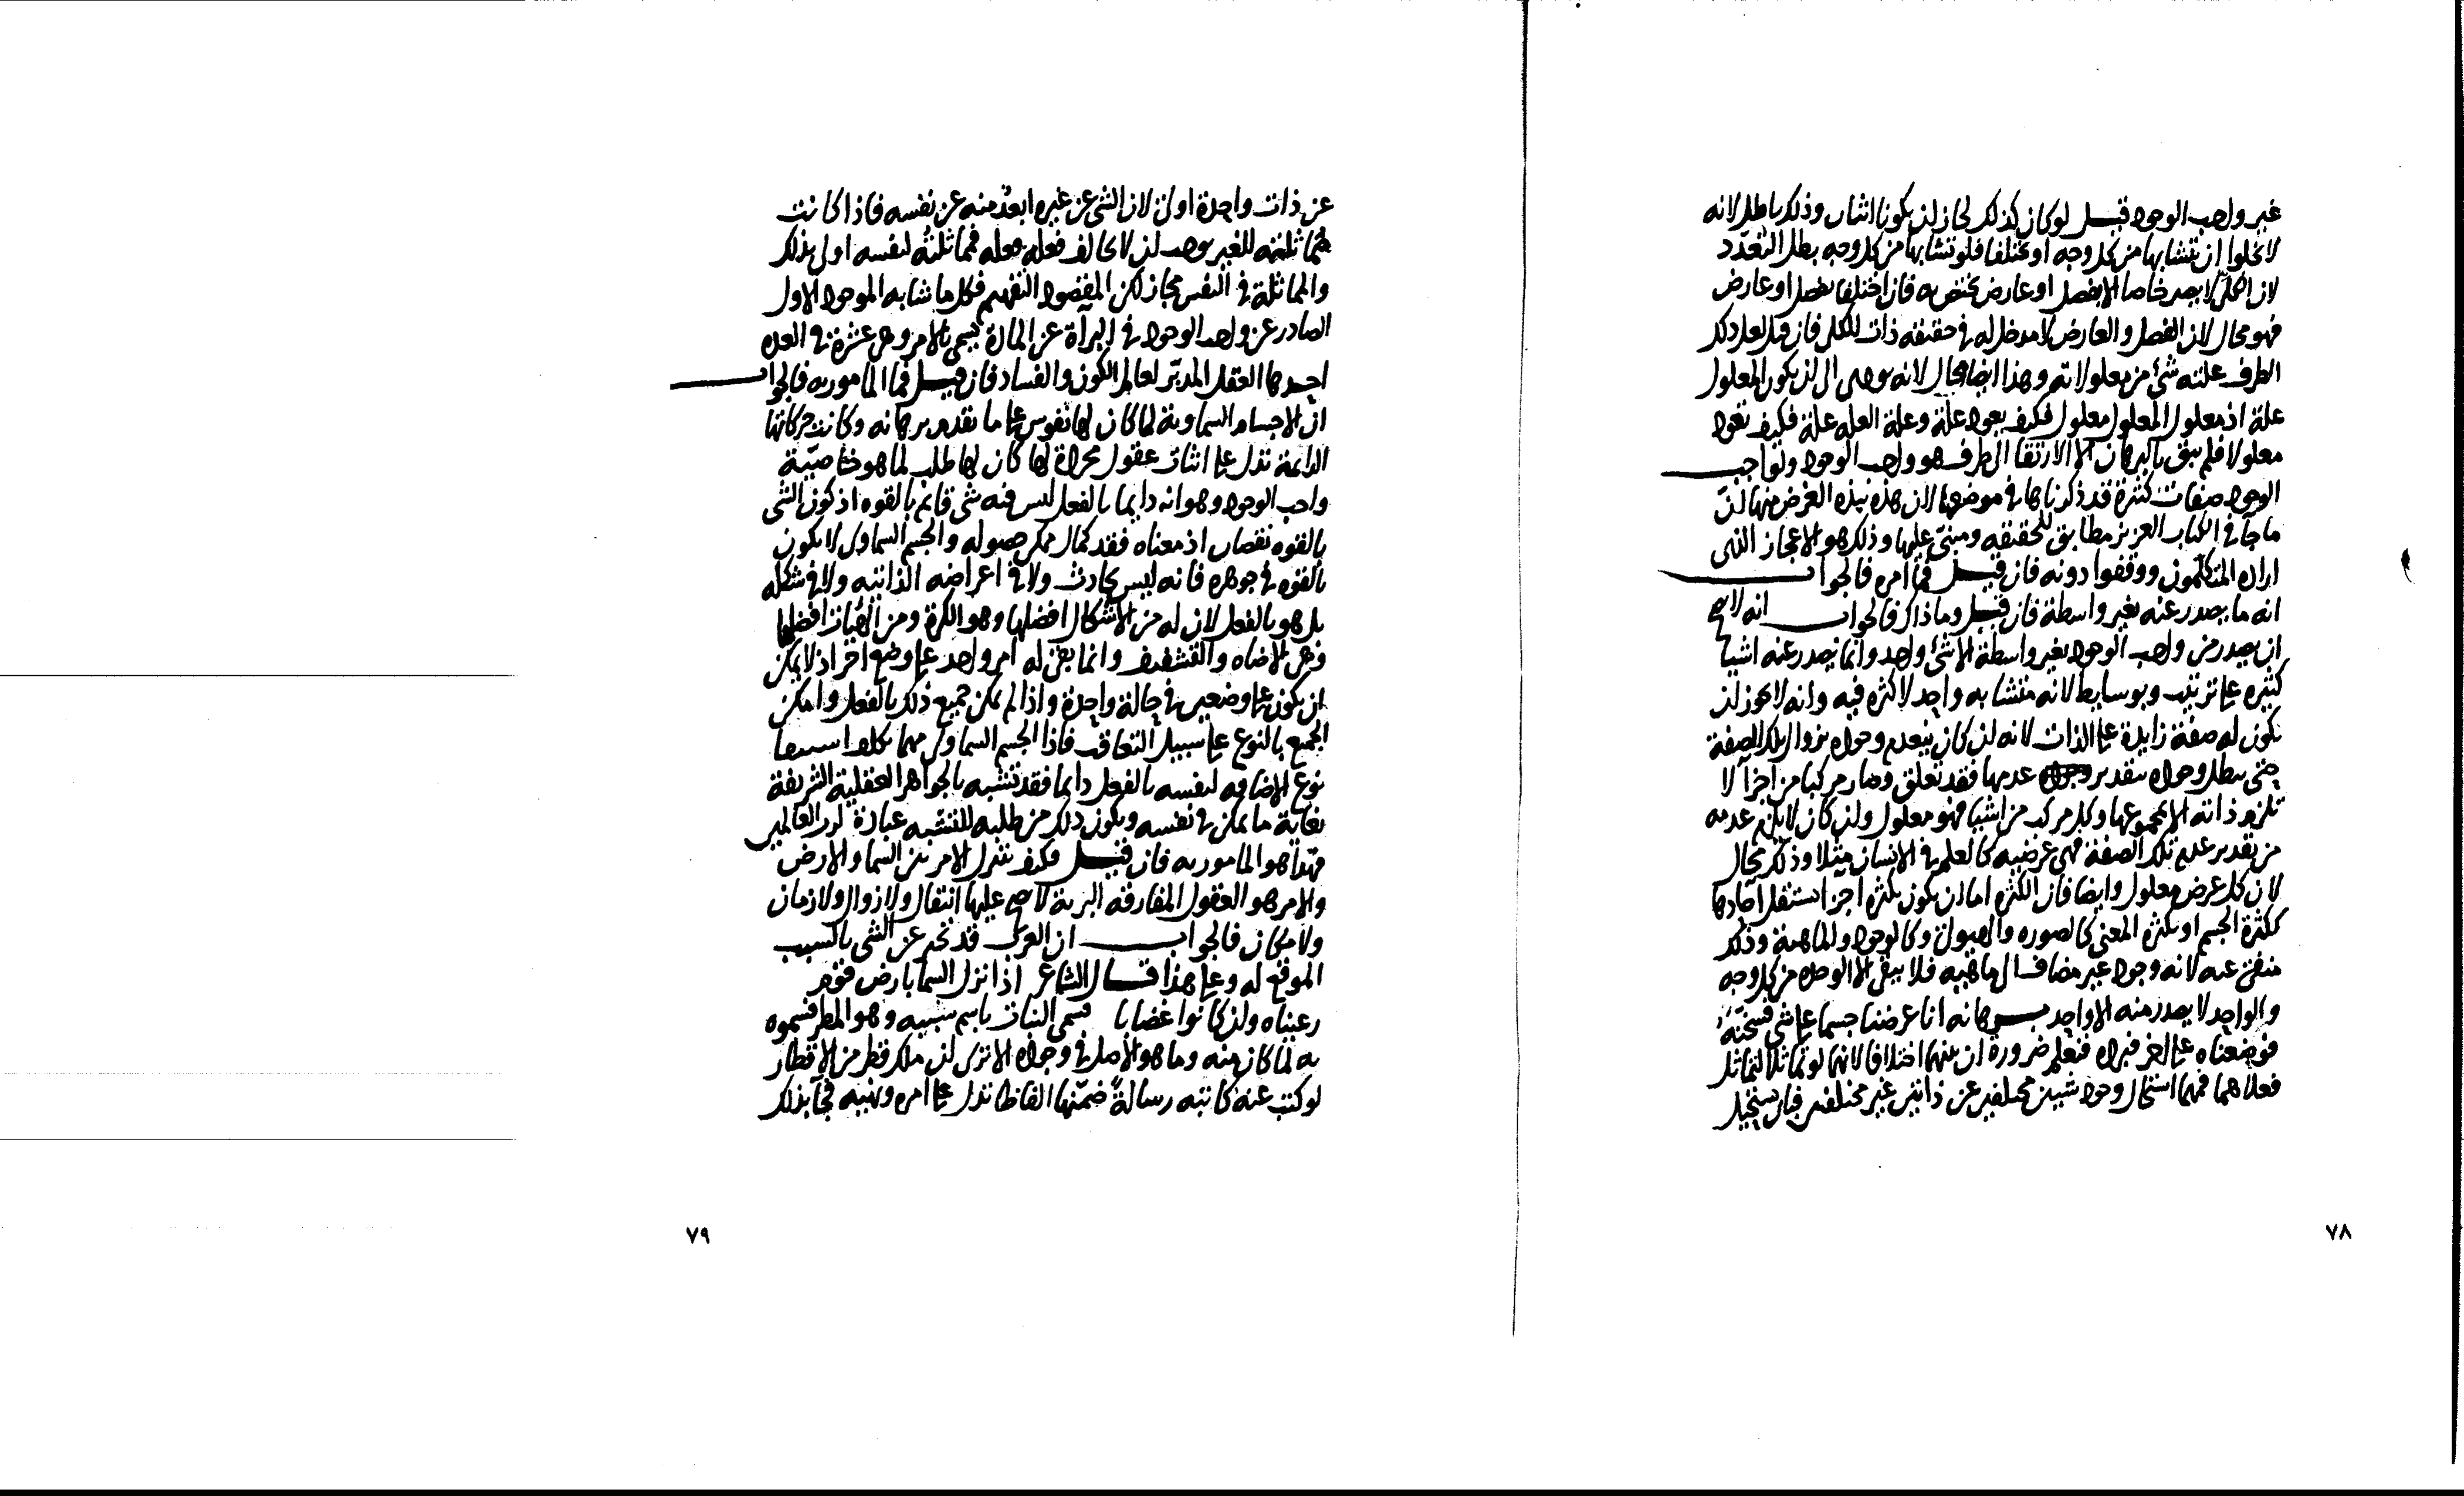 غير واجب الوجود قيل لو كان كذلك لجاز ان يكونا اثنان وذلك باطل لانه
لا يخلوا ان يتشابها من كل وجه او يختلفا فلو تشابها من كل وجه بطل التعدد
لان الكل لا يصير خاصا الا بفصل او عارض يختص به فان اختلفا بفصل او عارض
فهو محال لان الفصل والعارض لا مدخل له في حقيقة ذات الكل فان قيل لعل ذلك
الطرف علته شئ من معلولاته وهذا ايضا محال لانه يوصى الى ان يكون المعلول
علة اذ معلول المعلول معلول فكيف يعود علة وعلة العله علة فكيف تعود
معلولا فلم يبق بالبرهان الا الارتقا الى طرف هو واجب الوجود ولواجب
الوجود صفات كثيرة قد ذكرناها في موضعها لان هذه نبذه الغرض منها ان
ما جآ في الكتاب العزيز مطابق للحقيقه ومبنى عليها وذلك هو الاعجاز الذى
اراده المتكلمون ووقفوا دونه فان قيل فما امره فالجواب
انه ما يصدر عنه بغير واسطة فان قيل وما ذاك فالجواب انه لا يصح
ان يصدر من واجب الوجود بغير واسطة الا شئ واحد وانما يصدر عنه اشيا
كثيره على ترتيب وبوسايط لانه متشابه واحد لا كثره فيه وانه لا يجوز ان
تكون له صفة زايدة على الذات لانه ان كان ينعدم وجوده بزوال تلك الصفة
حتى يبطل وجوده بتقدير عدمها فقد تعلق وصار مركبا من اجزآ لا
تلزم ذاته الا بمجموعها وكل مركب من اشيا فهو معلول وان كان لا يلزم عدمه
من تقدير عدم تلك الصفة فهى عرضيه كالعلم في الانسان مثلا وذلك محال
لان كل عرض معلول وايضا فان الكثره اما ان يكون بكثره اجزا استقل آحادها
ككثرة الجسم او بكثره المعنى كالصوره والهيولى وكالوجود والماهية وذلك
منفى عنه لانه وجود غير مضاف الى ماهيه فلا يبقى الا الوحده من كل وجه
والواحد لا يصدر منه الا واحد برهانه انا عرضنا جسما على شئ فسخنه
فوضعناه على اخر فبرده فنعلم ضرورة ان بينهما اختلافا لانهما لو تماثلا لتماثل
فعلاهما فمهما استحال وجود شيين مختلفين عن ذاتين غير مختلفه فبان يستحيل
٧٨
عن ذات واحدة اولى لان الشئ عن غيره ابعد منه عن نفسه فاذا كانت
مماثلته للغير يوجب ان لا يخالف فعله فعله فمماثلته لنفسه اولى بذلك
والمماثلة في النفس مجاز لكن المقصود التفهيم فكل ما شابه الموجود الاول
الصادر عن واجب الوجود في البرآة عن المادة يسمى بالامر وهى عشرة في العدد
احدها العقل المدبر لعالم الكون والفساد فان قيل فما المامور به فالجواب
ان الاجسام السماوية لما كان لها نفوس على ما تقدم برهانه وكانت حركاتها
الدائمة تدل على اثبات عقول مجردة لها كان لها طلب لما هو خاصية
واجب الوجود وهو انه دايما بالفعل ليس فيه شئ قائم بالقوه اذ كون الشئ
بالقوه نقصان اذ معناه فقد كمال ممكن حصوله والجسم السماوى لا يكون
بالقوه في جوهره فانه ليس بحادث ولا في اعراضه الذاتيه ولا في شكله
بل هو بالفعل لان له من الاشكال افضلها وهو الكرة ومن الهيآت افضلها
وهى الاضاه والتشفيف وانما بقى له امر واحد على وضع اخر اذ لا يمكن
ان يكون على وضعين في حالة واحدة واذا لم يمكن جميع ذلك بالفعل وامكن
الجميع بالنوع على سبيل التعاقب فاذا الجسم السماوى مهما
نوع الاضافه لنفسه بالفعل دايما فقد تشبه بالجواهر العقلية الشريفة
بغاية ما يمكن في نفسه ويكون ذلك من طلبه للتشبه عبادة لرب العالمين
فهذا هو المامور به فان قيل فكيف يتنزل الامر بين السما والارض
والامر هو العقول المفارقه البرية لا يصح عليها انتقال ولا زوال ولا زمان
ولا مكان فالجواب ان العرب قد تخبر عن الشئ بالسبب
الموقع له وعلى هذا قال الشاعر اذا نزل السما بارض قوم
رعيناه وان كانوا غضابا فسمى النبات باسم سببه وهو المطر فسموه
به لما كان منه وما هو الاصل في وجوده الا ترى ان ملك قطر من الاقطار
لو كتب عنه كاتبه رسالة ضمنها الفاظا تدل على امره ونهيه فجآ بذلك
٧٩